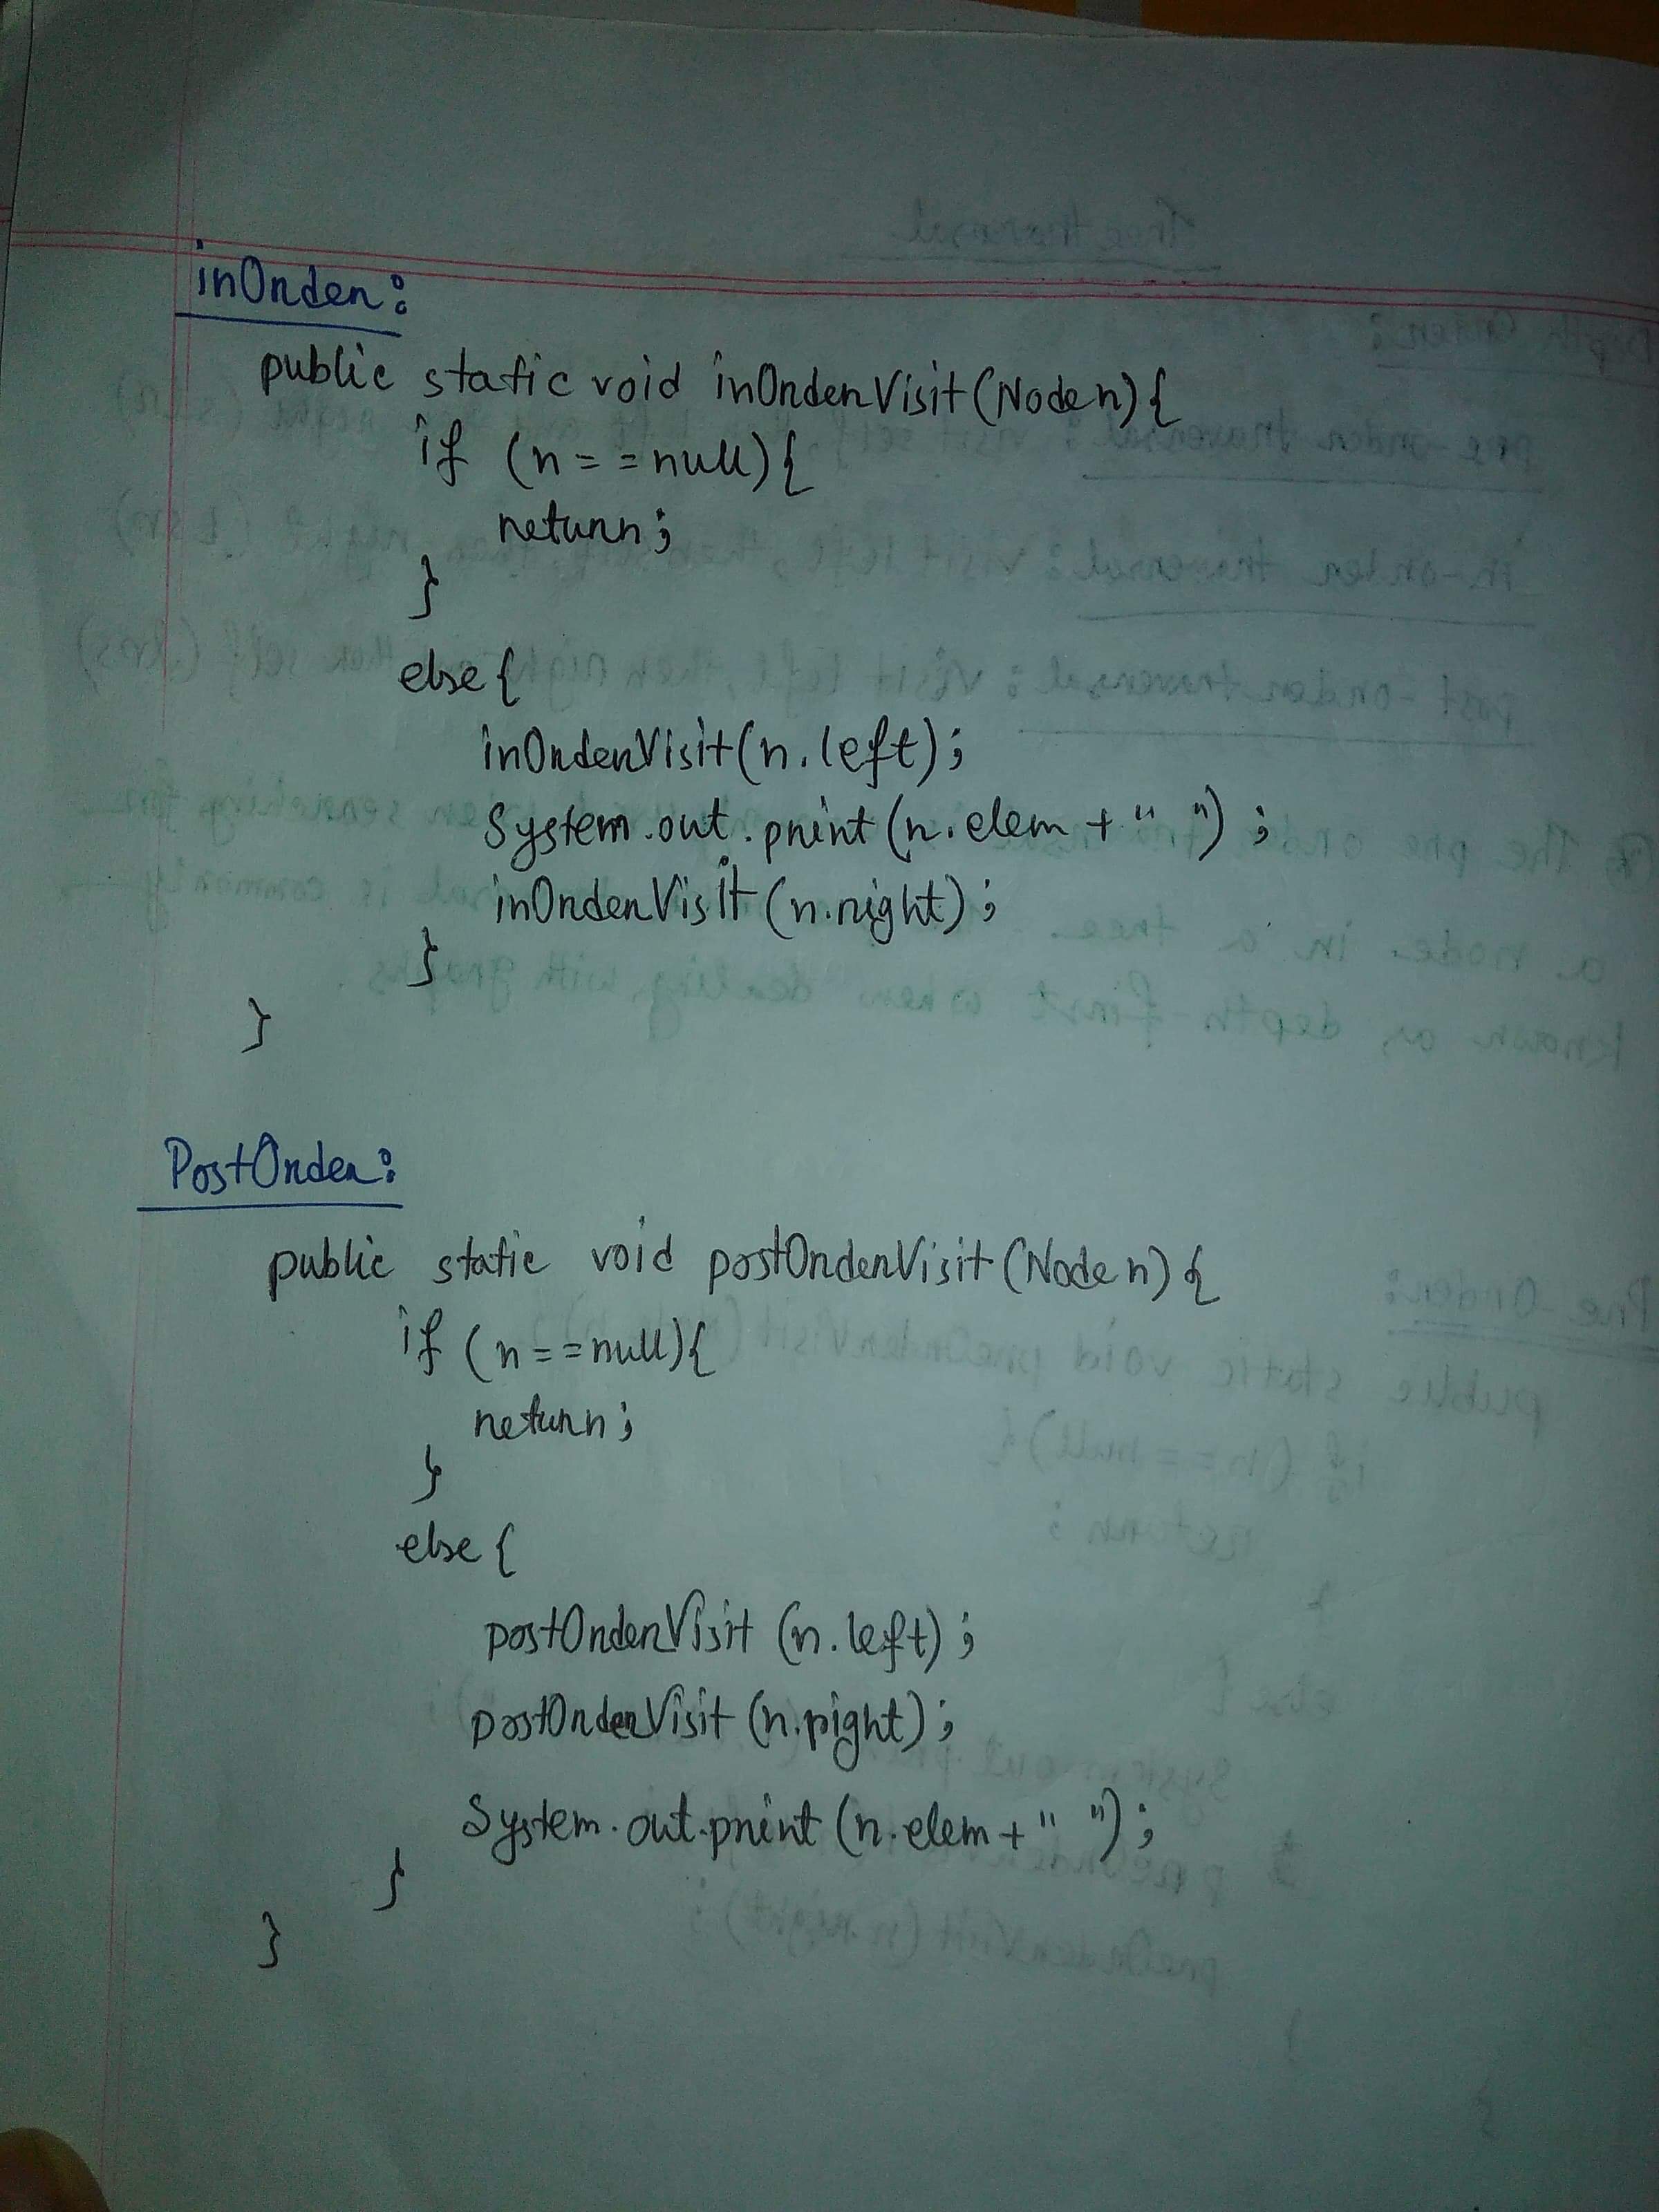 inOrder:
public static void inOrderVisit(Node n){
if (n==null){
return;
}
else{
inOrderVisit(n.left);
System.out.print(n.elem+" ");
inOrderVisit(n.right);
}
}
PostOrder:
public static void postOrderVisit(Node n){
if (n==null){
return;
}
else{
postOrderVisit(n.left);
postOrderVisit(n.right);
System.out.print(n.elem+" ");
}
}